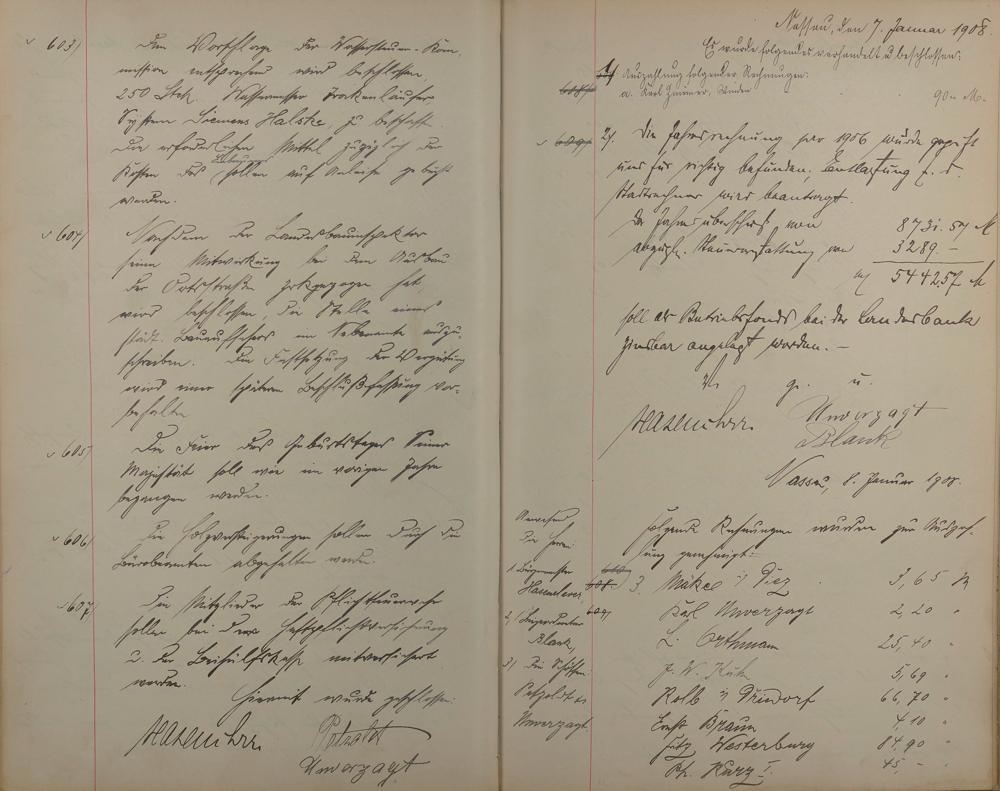 603)
Dem Vorschlage der Wasserstauer-Kom
mission entsprechend wird beschlossen,
250 Stck. Wassermesser Trockenläufer
System Siemens Halske, zu beschaffen.
Die erforderlichen Mittel zuzüglich der
Kosten des sollen auf Anleihe gebucht
werden.
604)
Nachdem der Landesbauinspektor
seine Mitwirkung bei dem Ausbau
der Ortsstraße zurückgezogen hat,
wird beschlossen, die Stelle eines
städt. Bauaufsehers im Nebenamte auszu-
schreiben. Die Festsetzung der Vergütung
wird einer späteren Beschlußfassung vor-
behalten
605)
Die Feier des Geburtstages Seiner
Majestät soll wie im vorigen Jahre
begangen werden.
606)
Die Holzversteigerungen sollen durch die
Bürobeamten abgehalten werden.
607)
Die Mitglieder der Pflichtfeuerwehr
sollen bei der Haftpflichtversicherung
u. der Beihülfskasse mitversichert
werden.
Hiermit wurde geschlossen.
Hasenclever. Petzoldt
Unverzagt
Nassau, den 7. Januar 1908.
Es wurde folgendes verhandelt u beschlossen:
1) Auszahlung folgender Rechnungen:
a. Karl 90 M.
2) Die Jahresrechnung per 1906 wurde geprüft
und für richtig befunden, Entlastung f. d.
Stadtrechner wird beantragt.
Der Jahresüberschuß von 8731.57 M
abzügl. Steuererstattung von 3289 –
5442.57 M
soll als Betriebsfonds bei der Landesbank
zinsbar angelegt werden. –
V. g. u.
Hasenclever. Unverzagt
Blank
Nassau, 8. Januar 1908.
Anwesend
die Herren
1. Bürgermeister
Hasenclever,
2)
Blank,
3) Die Schöffen
Petzoldt u
Unverzagt.
Folgende Rechnungen wurden zur Auszah-
lung genehmigt:
3. Makel i/ Diez 3,65 M
609) Karl Unverzagt 2,20 "
L. Orthmann 25,40 "
F. W. Kuhn 5,69 "
Kolb i/ Driedorf 66,70 "
Ernst Braun 4 10 "
Westerburg 84,90 "
Ph. Kurz I. 45, – "